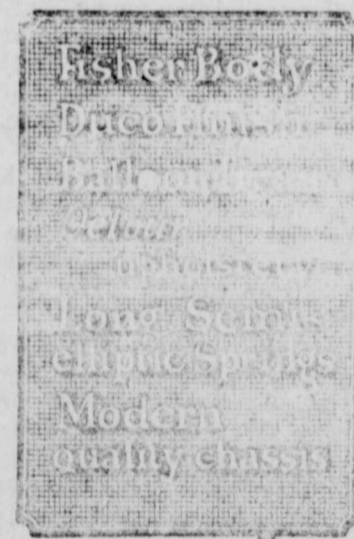 Fisher Body
Duco Finish
Balloon Tires
Velour
upholstery
Long Semi-
elliptic Springs
Modern
quality chassis